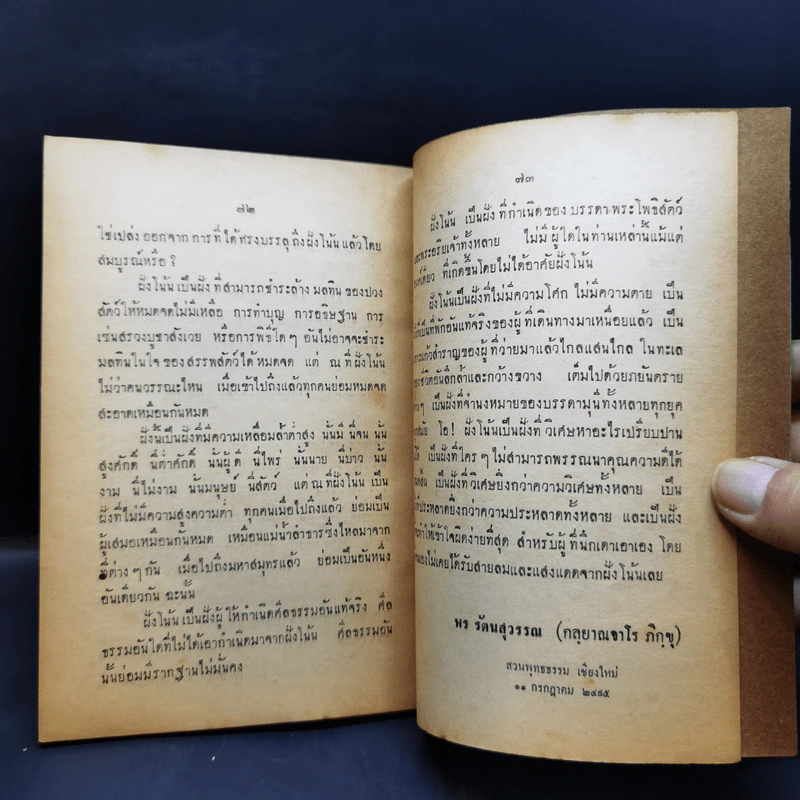 ๗๒
ใช่เปล่ง ออกจาก การ ที่ ได้ ทรงบรรลุ ถึง ฝั่งโน้น แล้วโดย
สมบูรณ์หรือ ?
ฝั่งโน้น เป็นฝั่ง ที่สามารถชำระล้าง มลทิน ของปวง
สัตว์ให้หมดจดไม่มีเหลือ การทำบุญ การอธิษฐาน การ
เซ่นสรวงบูชาสังเวย หรือการพิธีใดๆ อันไม่อาจชำระ
มลทินในใจ ของ สรรพสัตว์ได้ หมดจด แต่ ณ ที่ ฝั่งโน้น
ไม่ว่าคนวรรณะไหน เมื่อเข้าไปถึงแล้วทุกคนย่อมหมดจด
สะอาดเหมือนกันหมด
ฝั่งนี้เป็นฝั่งที่มีความเหลื่อมล้ำต่ำสูง นั้นมี นี่จน นั้น
สูงศักดิ์ นี่ต่ำศักดิ์ นั้นผู้ดี นี่ไพร่ นั้นนาย นี่บ่าว นั้น
งาม นี่ไม่งาม นั้นมนุษย์ นี่สัตว์ แต่ ณ ที่ฝั่งโน้น เป็น
ฝั่งที่ไม่มีความสูงความต่ำ ทุกคนเมื่อไปถึงแล้ว ย่อมเป็น
ผู้เสมอเหมือนกันหมด เหมือนแม่น้ำลำธารซึ่งไหลมาจาก
ที่ต่าง ๆ กัน เมื่อไปถึงมหาสมุทรแล้ว ย่อมเป็นอันหนึ่ง
อันเดียวกัน ฉะนั้น
ฝั่งโน้น เป็นฝั่งผู้ ให้กำเนิดศีลธรรมอันแท้จริง ศีล
ธรรมอันใดที่ไม่ได้เอากำเนิดมาจากฝั่งโน้น ศีลธรรมอัน
นั้นย่อมมีรากฐานไม่มั่นคง
๗๓
ฝั่งโน้น เป็นฝั่ง ที่กำเนิด ของ บรรดา พระโพธิสัตว์
และพระอริยเจ้าทั้งหลาย ไม่มี ผู้ ใดในท่านเหล่านั้นแม้แต่
องค์เดียว ที่เกิดขึ้นโดยไม่ได้อาศัยฝั่งโน้น
ฝั่งโน้นเป็นฝั่งที่ไม่มีความโศก ไม่มีความตาย เป็น
เป็นที่พักอันแท้จริงของผู้ ที่เดินทางมาเหนื่อยแล้ว เป็น
สำราญของผู้ ที่ว่ายมาแล้วไกลแสนไกล ในทะเล
ชีวิตอันลึกล้ำและกว้างขวาง เต็มไปด้วยภยันตราย
ต่างๆ เป็นฝั่งที่จำนงหมายของบรรดามุนีทั้งหลายทุกยุค
สมัย โอ ! ฝั่งโน้นเป็นฝั่งที่ วิเศษหาอะไรเปรียบปาน
เป็นฝั่งที่ใครๆ ไม่สามารถพรรณนาคุณความดีได้
เป็นฝั่งที่วิเศษยิ่งกว่าความวิเศษทั้งหลาย เป็น
ที่ประหลาดยิ่งกว่าความประหลาดทั้งหลาย และเป็นฝั่ง
ทำให้เข้าใจผิดง่ายที่สุด สำหรับผู้ ที่นึกเดาเอาเอง โดย
ไม่เคยได้รับสายลมและแสงแดดจากฝั่งโน้นเลย
พร รัตนสุวรรณ (กลฺยาณจาโร ภิกฺขุ)
สวนพุทธธรรม เชียงใหม่
๑๑ กรกฎาคม ๒๔๙๕